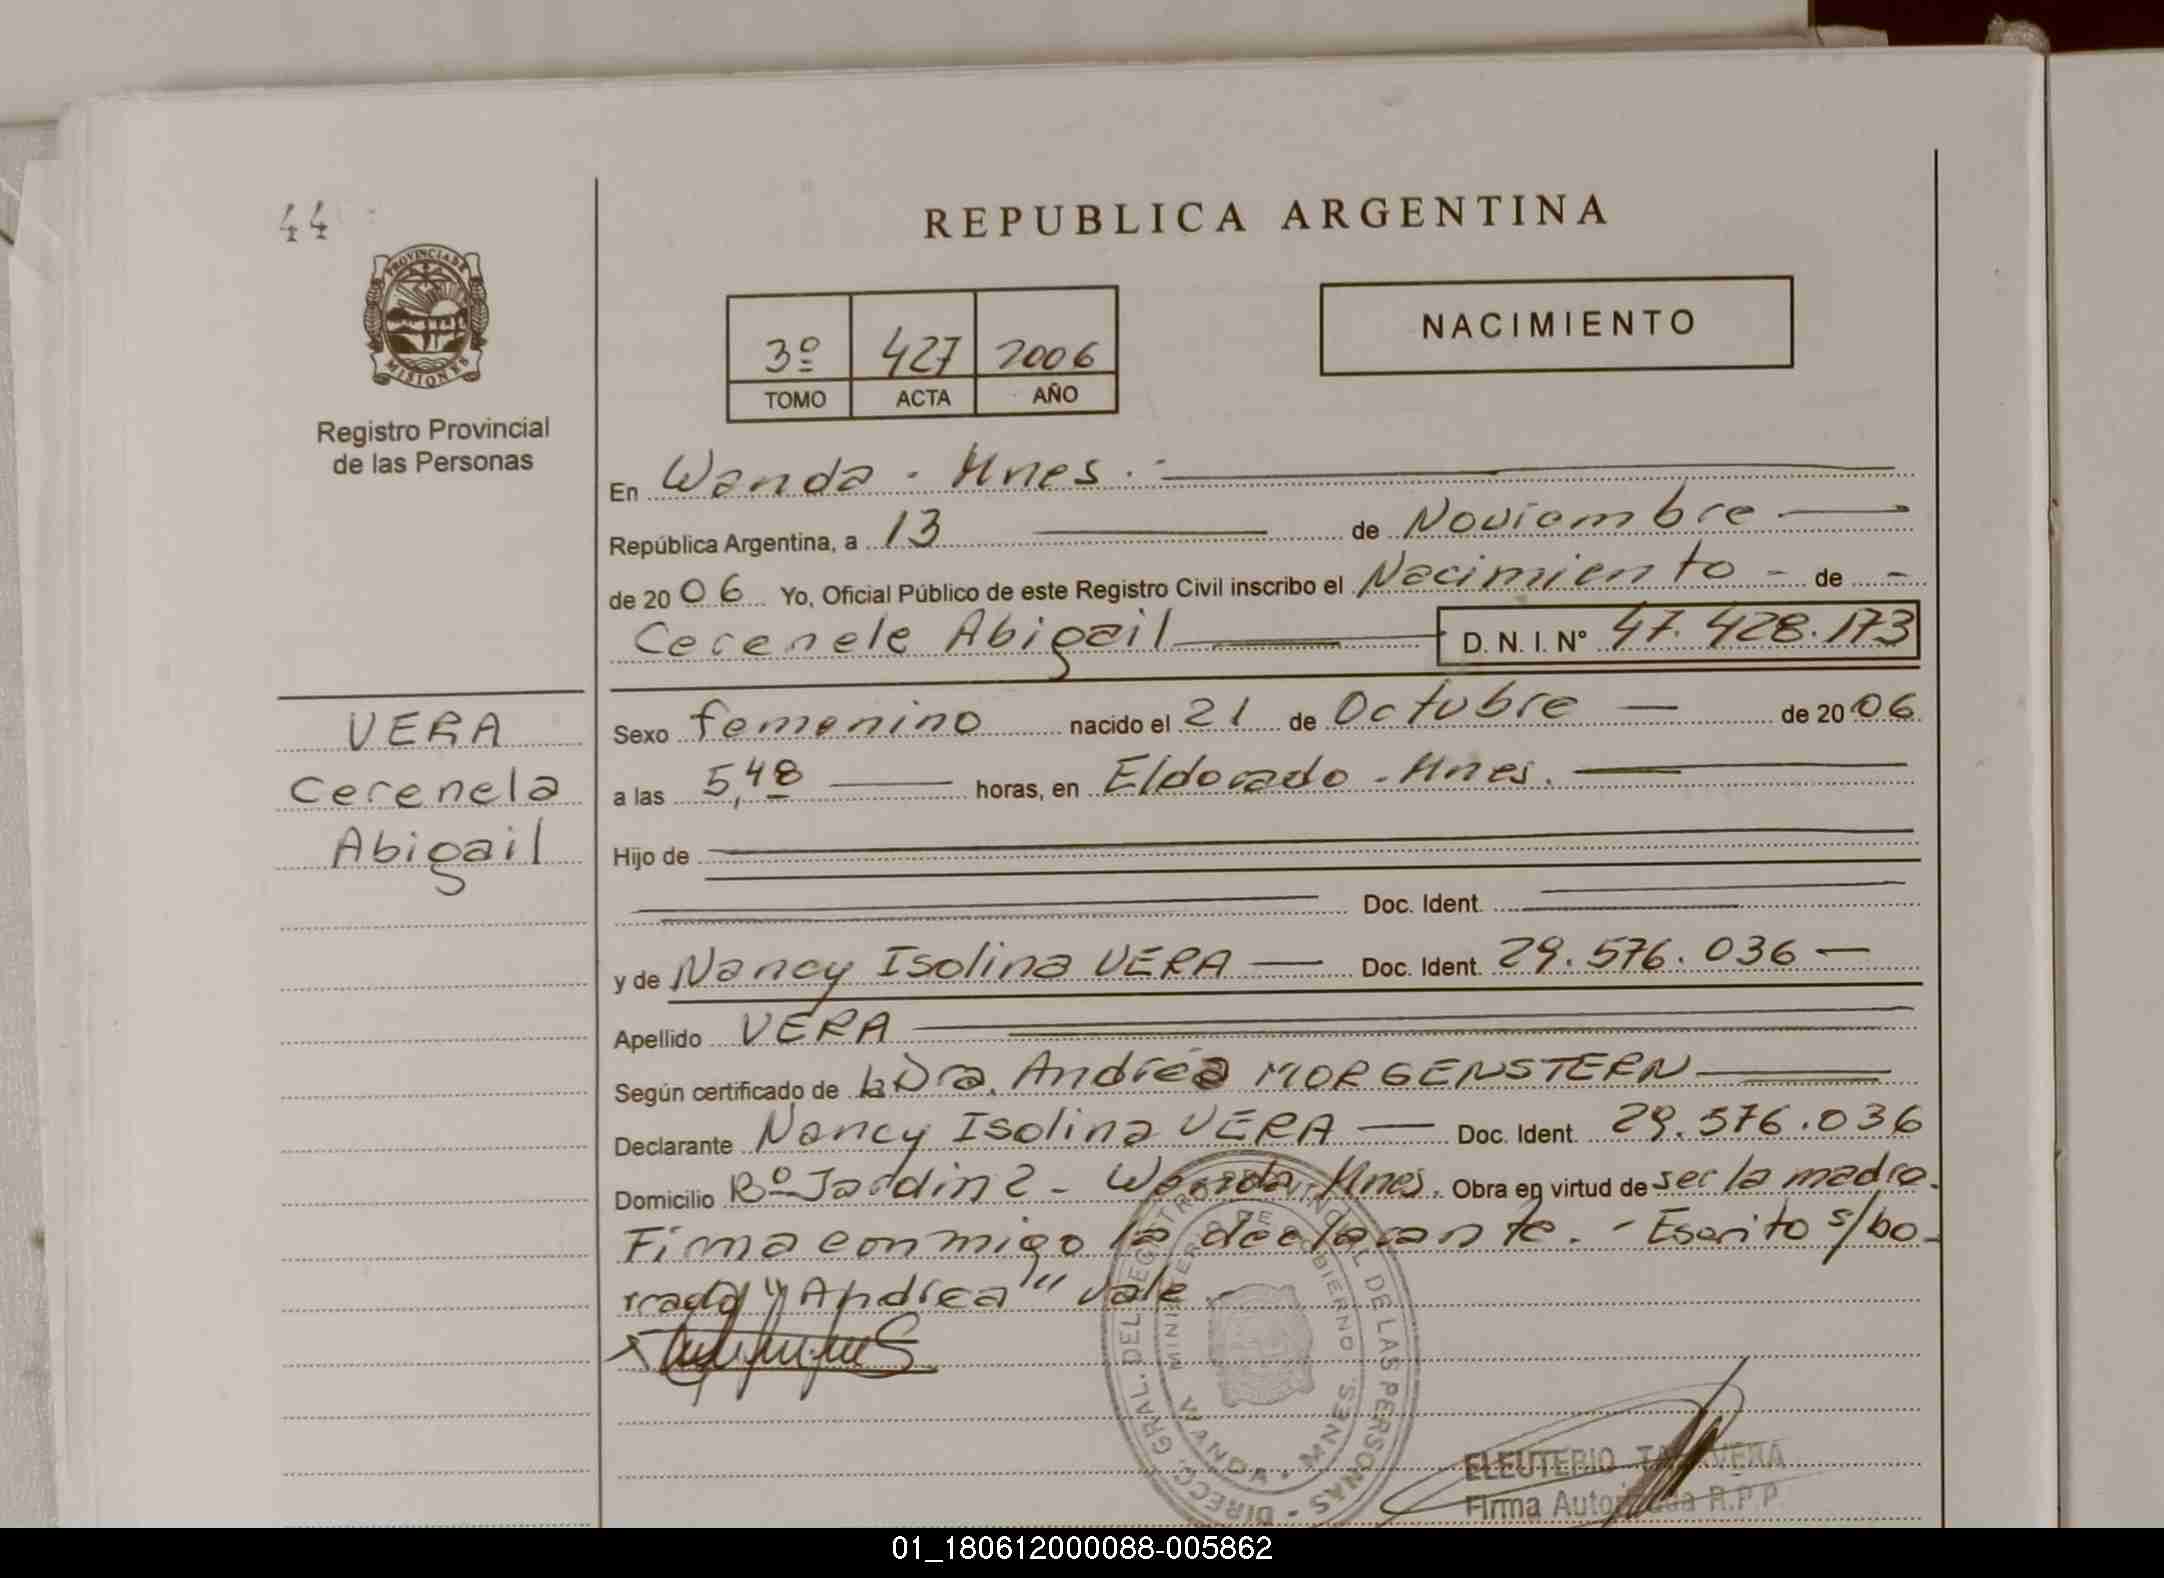 44
REPUBLICA ARGENTINA
PROVINCIA DE
MISIONES
Registro Provincial
de las Personas
3º 427 2006
TOMO ACTA AÑO
NACIMIENTO
En Wanda - Mnes.-
República Argentina, a 13 de Noviembre
de 2006 Yo, Oficial Público de este Registro Civil inscribo el Nacimiento - de -
Cerenele Abigail D. N. I. Nº 47.428.173
VERA
Cerenela
Abigail
Sexo femenino nacido el 21 de Octubre — de 2006
a las 5,48 horas, en Eldorado - Mnes.
Hijo de
Doc. Ident.
y de Nancy Isolina VERA — Doc. Ident. 29.576.036 —
Apellido VERA
Según certificado de la Dra. Andrea MORGENSTERN
Declarante Nancy Isolina VERA — Doc. Ident. 29.576.036
Domicilio Bº Jardin 2 - Wanda, Mnes. Obra en virtud de ser la madre.
Firma conmigo la declarante. - Escrito s/bo-
rrado "Andrea" vale.-
DIRECC. GRAL. DEL REGISTRO PROVINCIAL DE LAS PERSONAS
MINISTERIO DE GOBIERNO
WANDA - MNES.
ELEUTERIO TALAVERA
Firma Autorizada R.P.P.
01_180612000088-005862